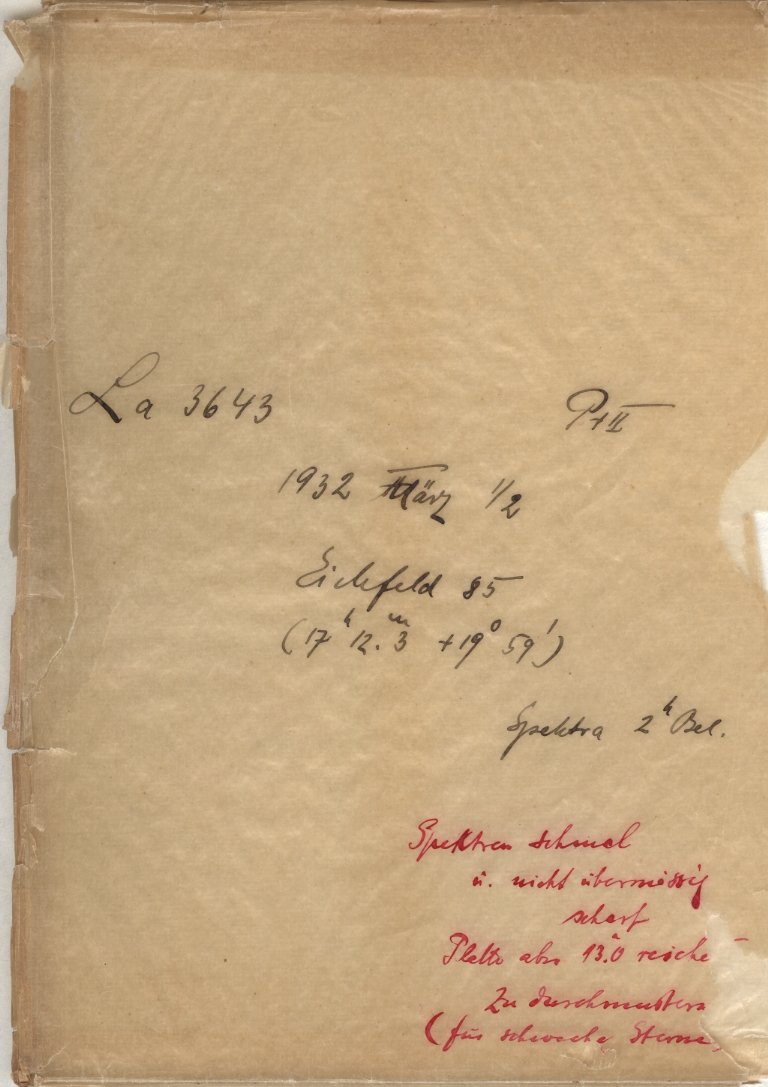 La 3643 P+II
1932 März 1/2
Eichfeld 85
(17ʰ 12.ᵐ3 +19° 59')
Spektra 2ʰ Bel.
Spektren schmal
u. nicht übermässig
scharf
Platte aber 13.0 reiche
Zu durchmustern
(für schwache Sterne